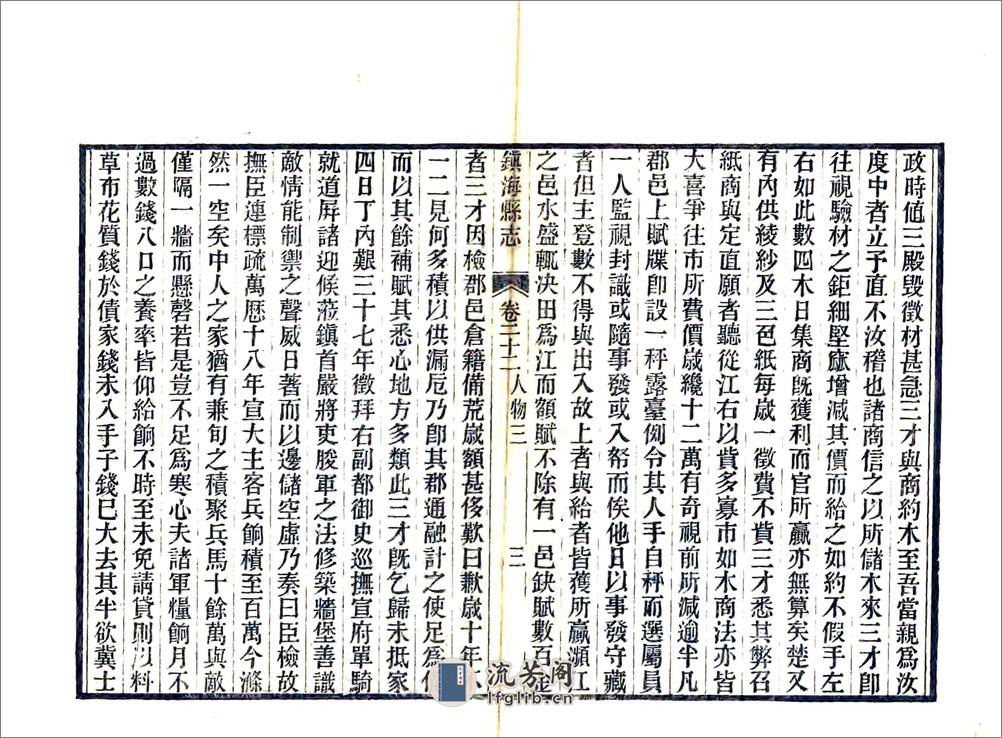 政時值三殿毀徵材甚急三才與商約木至吾當親為汝
度中者立予直不汝稽也諸商信之以所儲木來三才卽
往視驗材之鉅細堅窳增減其價而給之如約不假手左
右如此數四木日集商旣獲利而官所贏亦無算矣楚又
有內供綾紗及三色紙每歲一徵費不貲三才悉其弊召
紙商與定直願者聽從江右以貲多寡市如木商法亦皆
大喜爭往市所費價歲纔十二萬有奇視前所減逾半凡
郡邑上賦牒卽設一秤露臺側令其人手自秤而選屬員
一人監視封識或隨事發或入帑而俟他日以事發守藏
者但主登數不得與出入故上者與給者皆獲所贏瀕江
之邑水盛輒決田為江而額賦不除有一邑缺賦數百金
鎮海縣志
卷二十二
人物三
三
者三才因檢郡邑倉籍備荒歲額甚侈歎曰歉歲十年不
一二見何多積以供漏卮乃卽其郡通融計之使足為
而以其餘補賦其悉心地方多類此三才旣乞歸未抵家
四日丁內艱三十七年徵拜右副都御史巡撫宣府單騎
就道屏諸迎候蒞鎮首嚴將吏朘軍之法修築牆堡善識
敵情能制禦之聲威日著而以邊儲空虛乃奏曰臣檢故
撫臣連標疏萬歷十八年宣大主客兵餉積至百萬今滌
然一空矣中人之家猶有兼旬之積聚兵馬十餘萬與敵
僅隔一牆而懸磬若是豈不足為寒心夫諸軍糧餉月不
過數錢八口之養率皆仰給餉不時至未免請貸則以料
草布花質錢於債家錢未入手子錢已大去其半欲冀士
流芳阁
lfglib.cn